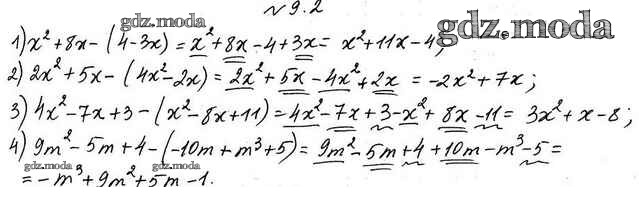 №9.2
gdz.moda
gdz.moda
1) x²+8x-(4-3x)=x²+8x-4+3x= x²+11x-4;
2) 2x²+5x-(4x²-2x)=2x²+5x-4x²+2x = -2x²+7x;
3) 4x²-7x+3-(x²-8x+11)=4x²-7x+3-x²+8x-11= 3x²+x-8;
4) 9m²-5m+4-(-10m+m³+5)=9m²-5m+4+10m-m³-5=
gdz.moda
gdz.moda
=-m³+9m²+5m-1.